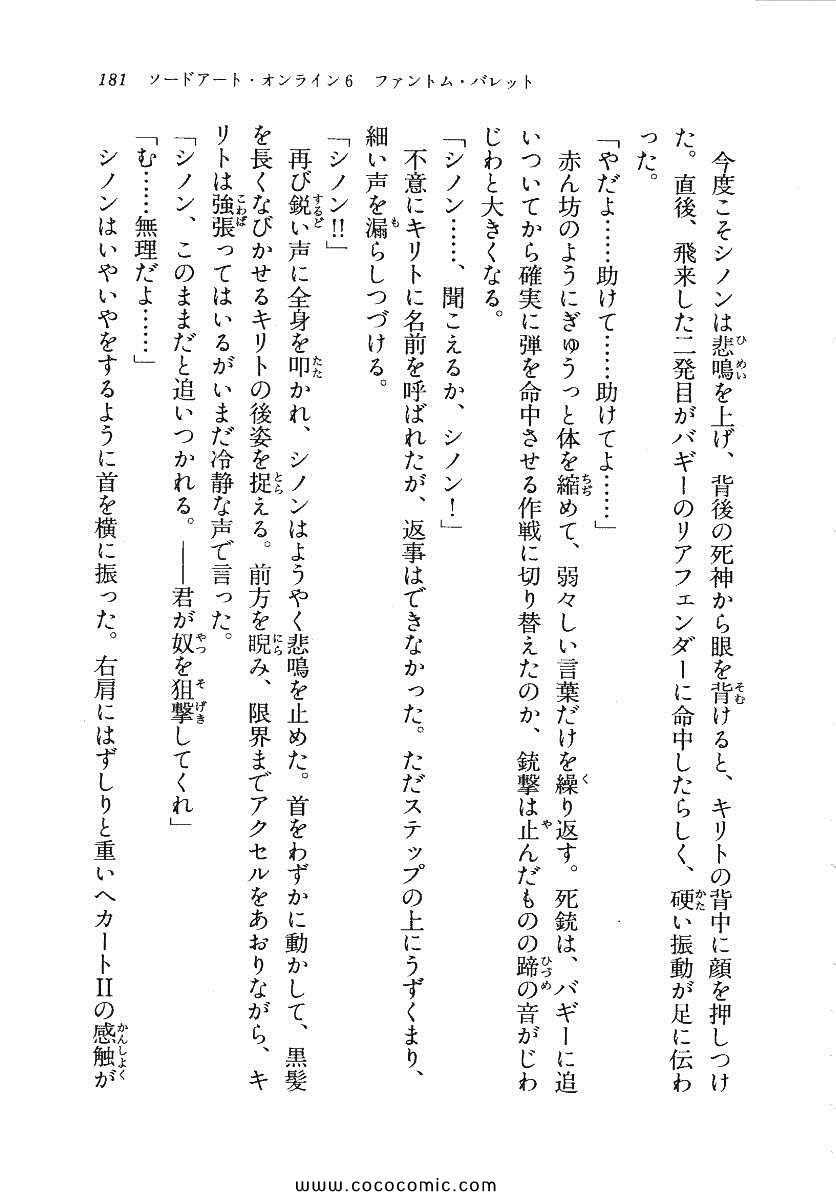 181 ソードアート・オンライン6 ファントム・バレット
　今度こそシノンは悲鳴を上げ、背後の死神から眼を背けると、キリトの背中に顔を押しつけ
た。直後、飛来した二発目がバギーのリアフェンダーに命中したらしく、硬い振動が足に伝わ
った。
「やだよ……助けて……助けてよ……」
　赤ん坊のようにぎゅうっと体を縮めて、弱々しい言葉だけを繰り返す。死銃は、バギーに追
いついてから確実に弾を命中させる作戦に切り替えたのか、銃撃は止んだものの蹄の音がじわ
じわと大きくなる。
「シノン……、聞こえるか、シノン！」
　不意にキリトに名前を呼ばれたが、返事はできなかった。ただステップの上にうずくまり、
細い声を漏らしつづける。
「シノン!!」
　再び鋭い声に全身を叩かれ、シノンはようやく悲鳴を止めた。首をわずかに動かして、黒髪
を長くなびかせるキリトの後姿を捉える。前方を睨み、限界までアクセルをあおりながら、キ
リトは強張ってはいるがいまだ冷静な声で言った。
「シノン、このままだと追いつかれる。――君が奴を狙撃してくれ」
「む……無理だよ……」
　シノンはいやいやをするように首を横に振った。右肩にはずしりと重いヘカートIIの感触が
www.cococomic.com